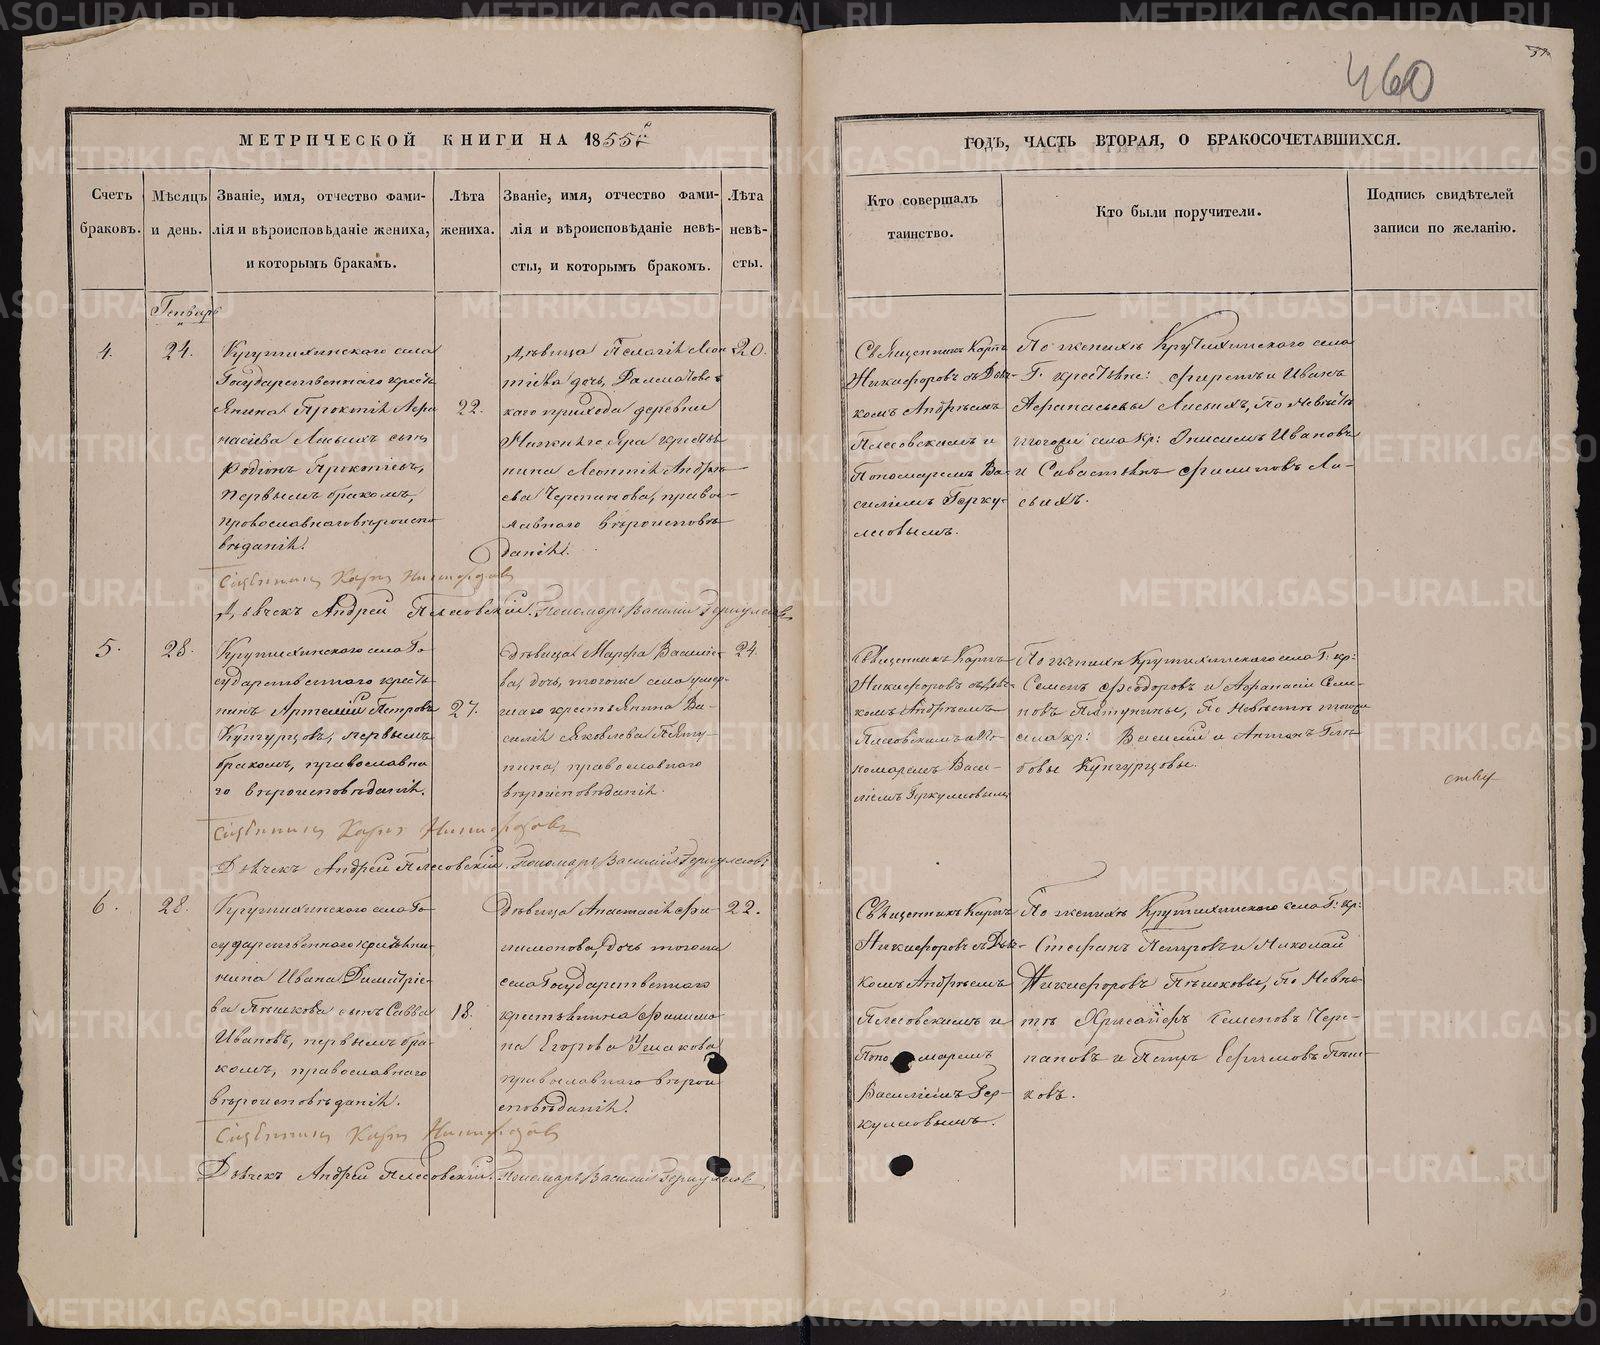 460
МЕТРИЧЕСКОЙ КНИГИ НА 1855й
ГОДЪ, ЧАСТЬ ВТОРАЯ, О БРАКОСОЧЕТАВШИХСЯ.
Счетъ браковъ.
Мѣсяцъ и день.
Званіе, имя, отчество фами-
лія и вѣроисповѣданіе жениха,
и которымъ бракамъ.
Лѣта жениха.
Званіе, имя, отчество фами-
лія и вѣроисповѣданіе невѣ-
сты, и которымъ бракомъ.
Лѣта невѣ-
сты.
Кто совершалъ
таинство.
Кто были поручители.
Подпись свидѣтелей
записи по желанію.
Генварь
4.
24.
Крутихинскаго села
Государственнаго кресть
янина Прокопія Афа
насіева Лисьихъ сынъ
Родіонъ Прокопіевъ,
первымъ бракомъ,
православнаго вѣроиспо
вѣданія.
22.
Дѣвица Пелагія Леон
тіева дочь, Далматовс
каго прихода деревни
Нижняго Яра крестья
нина Леонтія Андрѣ
ева Черепанова, право
славнаго вѣроисповѣ
данія.
20.
Священникъ Карпъ
Никифоровъ съ Дьяч-
комъ Андрѣемъ
Плесовскимъ и
Пономаремъ Ва-
силіемъ Герку-
лесовымъ.
По женихѣ Крутихинскаго села
Г. крестьяне: Ѳирсъ и Иванъ
Афанасьевы Лисьихъ, по Невѣстѣ
тогоже села кр: Онисимъ Ивановъ
и Савастьянъ Филиповъ Ли-
сьихъ.
Священникъ Карпъ Никифоровъ
Дьячекъ Андрей Плесовскій. Пономарь Василій Геркулесовъ
5.
28.
Крутихинскаго села Го
сударственнаго кресть
нинъ Артемій Петровъ
Кунгурцовъ, первымъ
бракомъ, православна
го вѣроисповѣданія.
27.
Дѣвица Марфа Василіе
ва дочь, тогоже села умер
шаго крестьянина Ва-
силія Яковлева Пяту
нина, православнаго
вѣроисповѣданія.
24.
Священникъ Карпъ
Никифоровъ съ Дьяч-
комъ Андрѣемъ
Плесовскимъ и По-
номаремъ Васи-
ліемъ Геркулесовымъ
По женихѣ Крутихинскаго села Г. кр:
Семенъ Феодоровъ и Афанасій Семе
новъ Пятунины, по Невѣстѣ тогоже
села кр: Василій и Антонъ Глѣ
бовы Кунгурцовы.
Священникъ Карпъ Никифоровъ
Дьячекъ Андрей Плесовскій. Пономарь Василій Геркулесовъ
6.
28.
Крутихинскаго села Го
сударственнаго крестьяни
нина Ивана Димитріе-
ва Пѣшкова сынъ Савва
Ивановъ, первымъ бра
комъ, православнаго
вѣроисповѣданія.
18.
Дѣвица Анастасія Фи
лимонова, дочь тогоже
села Государственнаго
крестьянина Филимо
на Егорова Ушакова
православнаго вѣрои
сповѣданія.
22.
Священникъ Карпъ
Никифоровъ съ Дья-
комъ Андрѣемъ
Плесовскимъ и
Пономаремъ
Василіемъ Гер-
кулесовымъ.
По женихѣ Крутихинскаго села Г. кр:
Стефанъ Петровъ и Николай
Никифоровъ Пѣшковы, по Невѣс
тѣ Хрисанфъ Семеновъ Чере-
пановъ и Петръ Ефимовъ Пѣш-
ковъ.
Священникъ Карпъ Никифоровъ
Дьячекъ Андрей Плесовскій. Пономарь Василій Геркулесовъ
METRIKI.GASO-URAL.RU